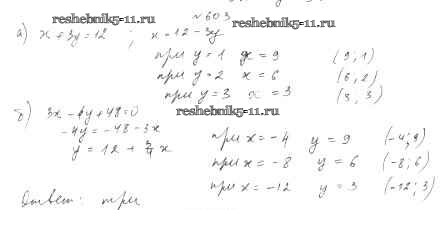 № 603
reshebnik5-11.ru reshebnik5-11.ru
а) x + 3y = 12 ; x = 12 - 3y
при y = 1 x = 9 (9; 1)
при y = 2 x = 6 (6, 2)
при y = 3 x = 3 (3, 3)
б) 3x - 4y + 48 = 0
reshebnik5-11.ru
-4y = -48 - 3x
y = 12 + 3/4 x
при x = -4 y = 9 (-4; 9)
при x = -8 y = 6 (-8; 6)
при x = -12 y = 3 (-12; 3)
Ответ: три